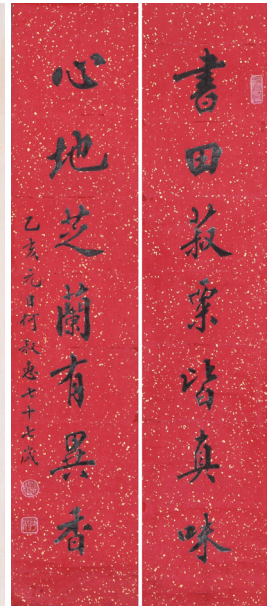 書田菽粟皆真味
心地芝蘭有異香
乙亥元日何叔惠七十七歲